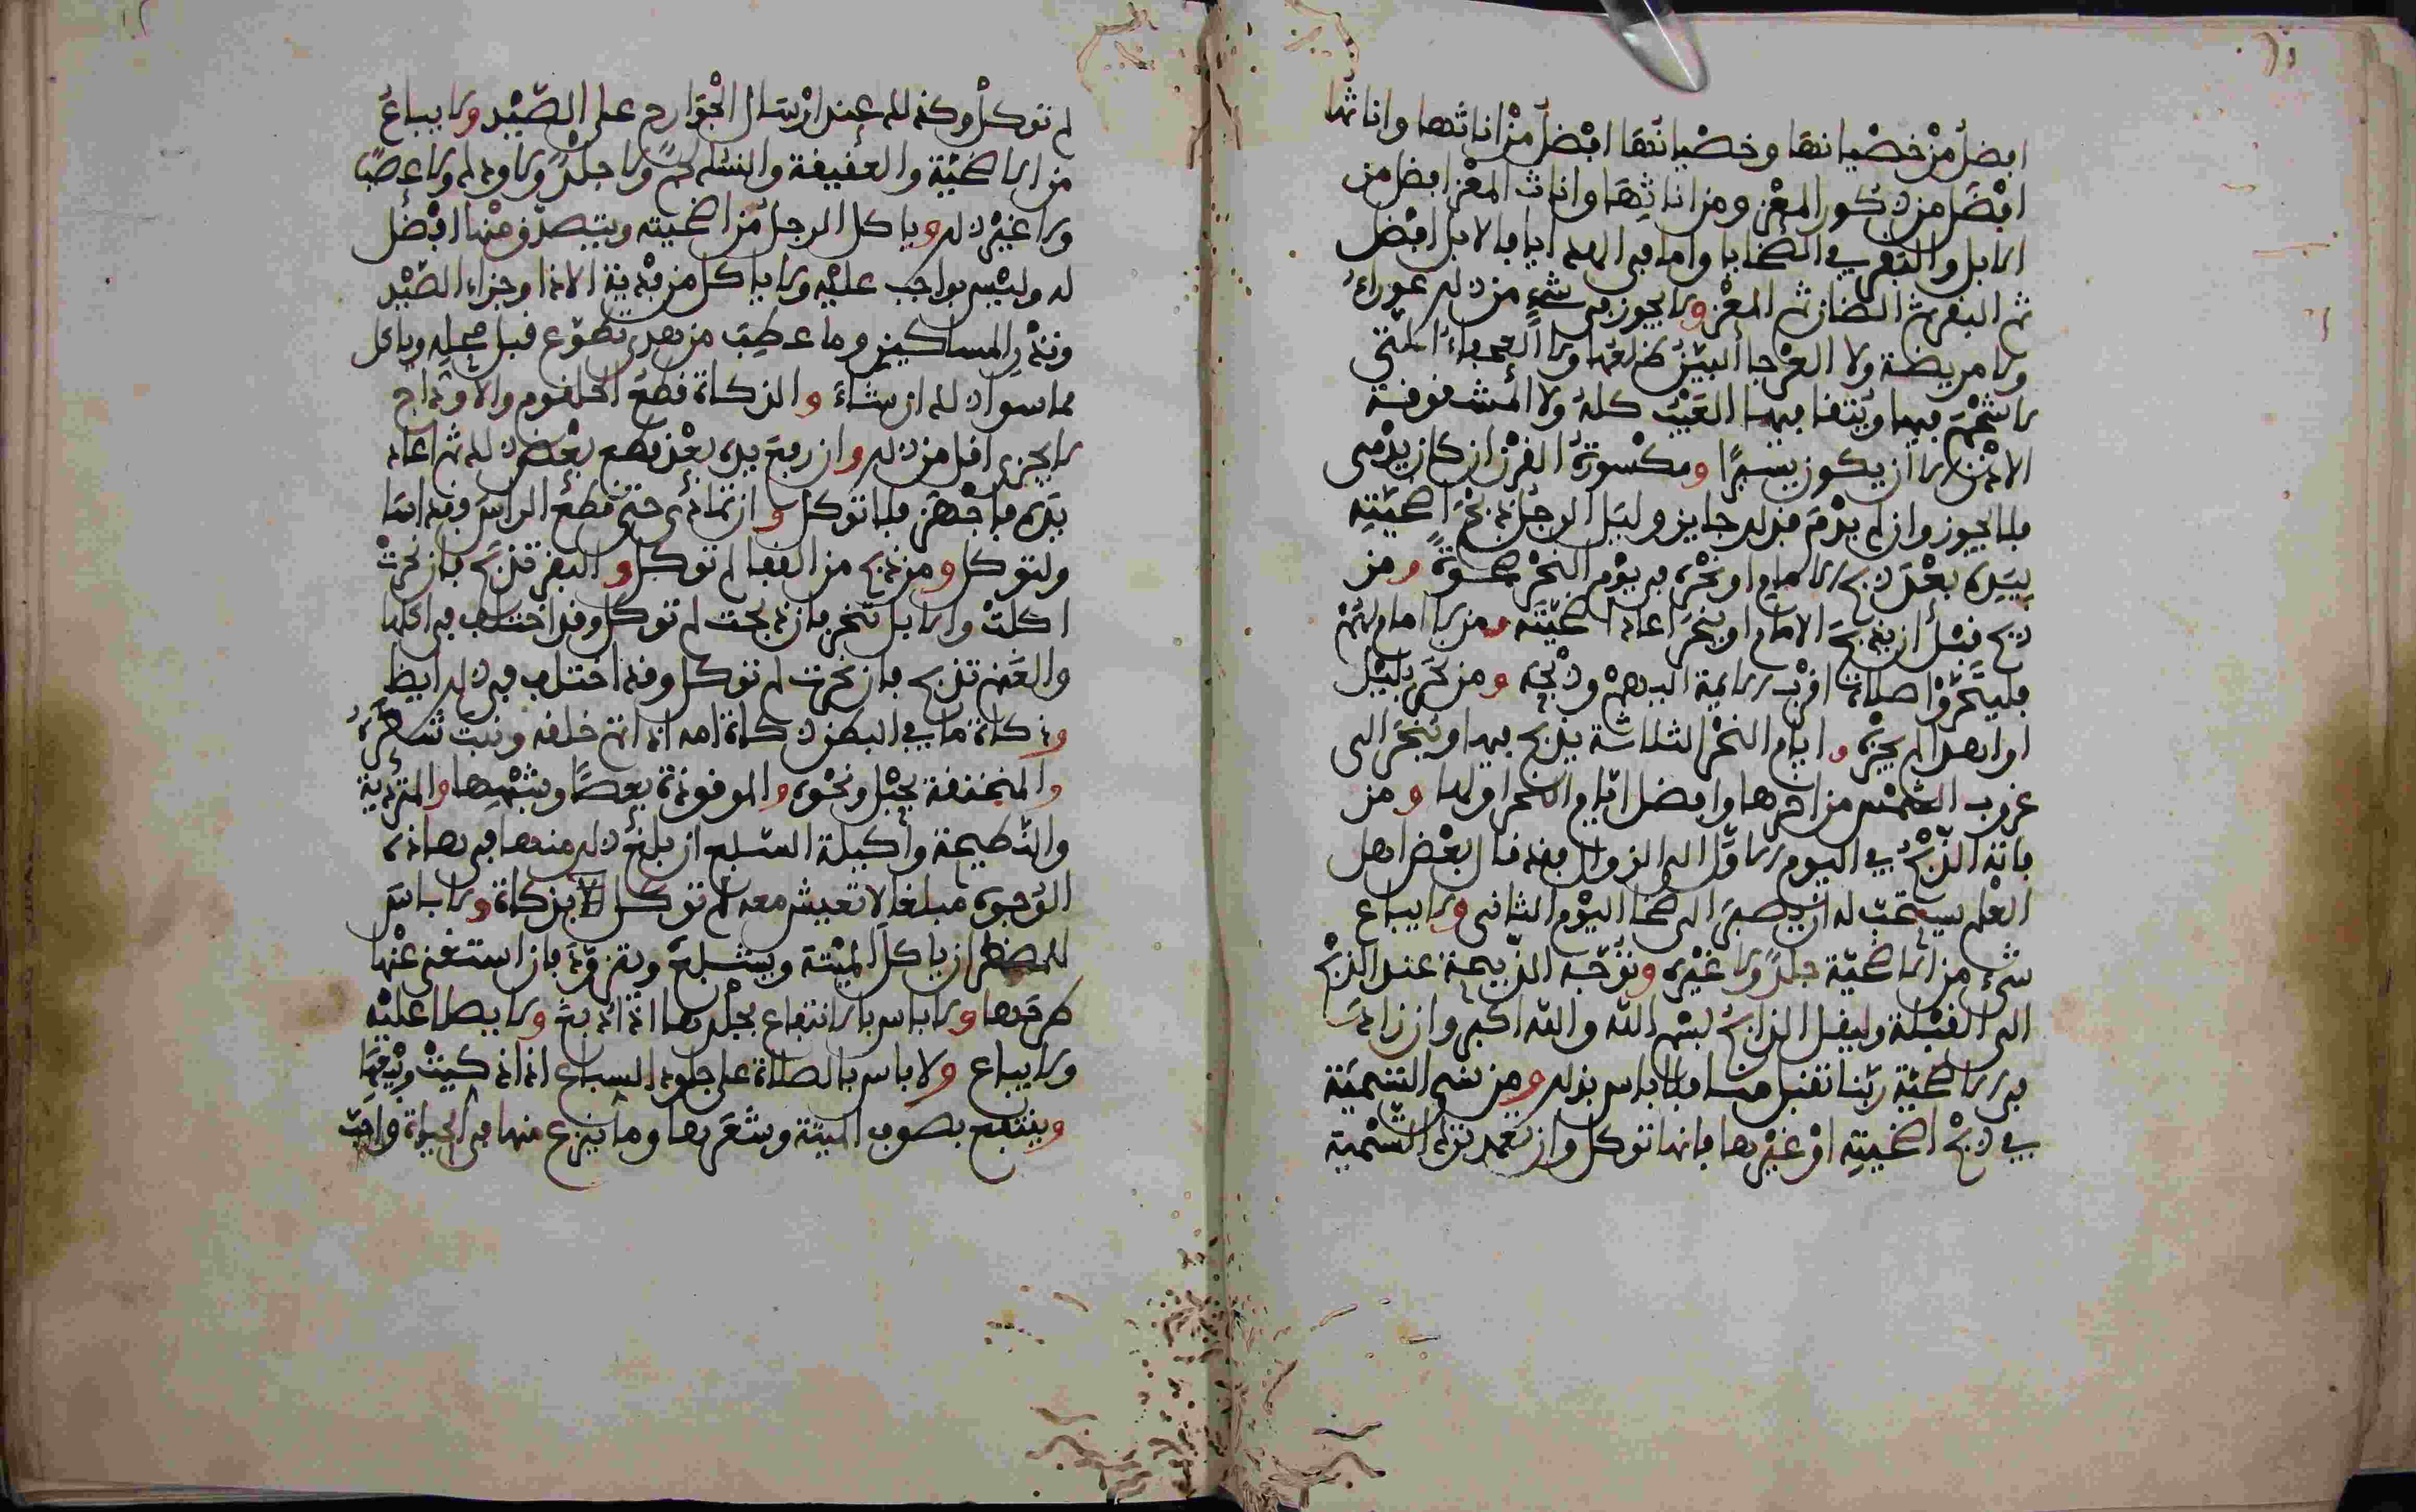 افضل من خصيانها وخصيانها افضل من اناثها واناثها
افضل من ذكور المعز ومن اناثها واناث المعز افضل من
الابل والبقر في الضحايا واما في الهدايا فالابل افضل
ثم البقر ثم الضان ثم المعز ولا يجوز في شيء من ذلك عوراء
ولا مريضة ولا العرجا البين ظلعها ولا العجفاء التي
لا شحم فيها ويتقا فيها العيب كله ولا المشقوقة
الاذن الا ان يكون يسيرا ومكسورة القرن ان كان يدمى
فلا يجوز وان لم يدم فذلك جايز وليل الرجل ذبح اضحيته
بيده بعد ذبح الامام او نحره في يوم النحر ضحوة ومن
ذبح قبل ان يذبح الامام او ينحر اعاد اضحيته ومن لا امام لهم
فليتحروا صلاة اقرب الايمة اليهم وذبحه ومن نحر بليل
او اهدا لم يجزه وايام النحر الثلاثة يذبح فيها وينحر الى
غروب الشمس من اخرها وافضل ايام النحر اولها ومن
فاته الذبح في اليوم الاول الى الزوال فقد قال بعض اهل
العلم يستحب له ان يصبر الى ضحا اليوم الثاني ولا يباع
شيء من الاضحية جلد ولا غيره وتوجه الذبيحة عند الذبح
الى القبلة وليقل الذابح بسم الله والله اكبر وان زاد
في الاضحية ربنا تقبل منا فلا باس بذلك ومن نسي التسمية
في ذبح اضحيته او غيرها فانها توكل وان تعمد ترك التسمية
لم توكل وكذلك عند ارسال الجوارح على الصيد ولا يباع
من الاضحية والعقيقة والنسك لحم ولا جلد ولا ودك ولا عصب
ولا غير ذلك وياكل الرجل من اضحيته ويتصدق منها افضل
له وليس بواجب عليه ولا ياكل من فدية الاذا وجزاء الصيد
ونذر المساكين وما عطب من هدي تطوع قبل محله وياكل
مما سوا ذلك ان شاء والذكاة قطع الحلقوم والاوداج
لا يجزي اقل من ذلك وان رفع يده بعد قطع بعض ذلك ثم اعاد
يده فاجهز فلا توكل وان تمادى حتى قطع الراس فقد اسا
ولتوكل ومن ذبح من القفا لم توكل والبقر تذبح فان نحرت
اكلت والابل تنحر فان ذبحت لم توكل وقد اختلف في اكلها
والغنم تذبح فان نحرت لم توكل وقد اختلف في ذلك ايظا
وذكاة ما في البطن ذكاة امه اذا تم خلقه ونبت شعره
والمنخنقة بحبل ونحوه والموقوذة بعصا وشبهها والمتردية
والنطيحة واكيلة السبع ان بلغ ذلك منها في هاذه
الوجوه مبلغا لا تعيش معه لم توكل بذكاة ولا باس
للمضطر ان ياكل الميتة ويشبع ويتزود فان استغنى عنها
طرحها ولا باس بالانتفاع بجلدها اذا دبغ ولا يصلا عليه
ولا يباع ولا باس بالصلاة على جلود السباع اذا ذكيت وبيعها
وينتفع بصوف الميتة وشعرها وما ينزع منها في الحياة واحب